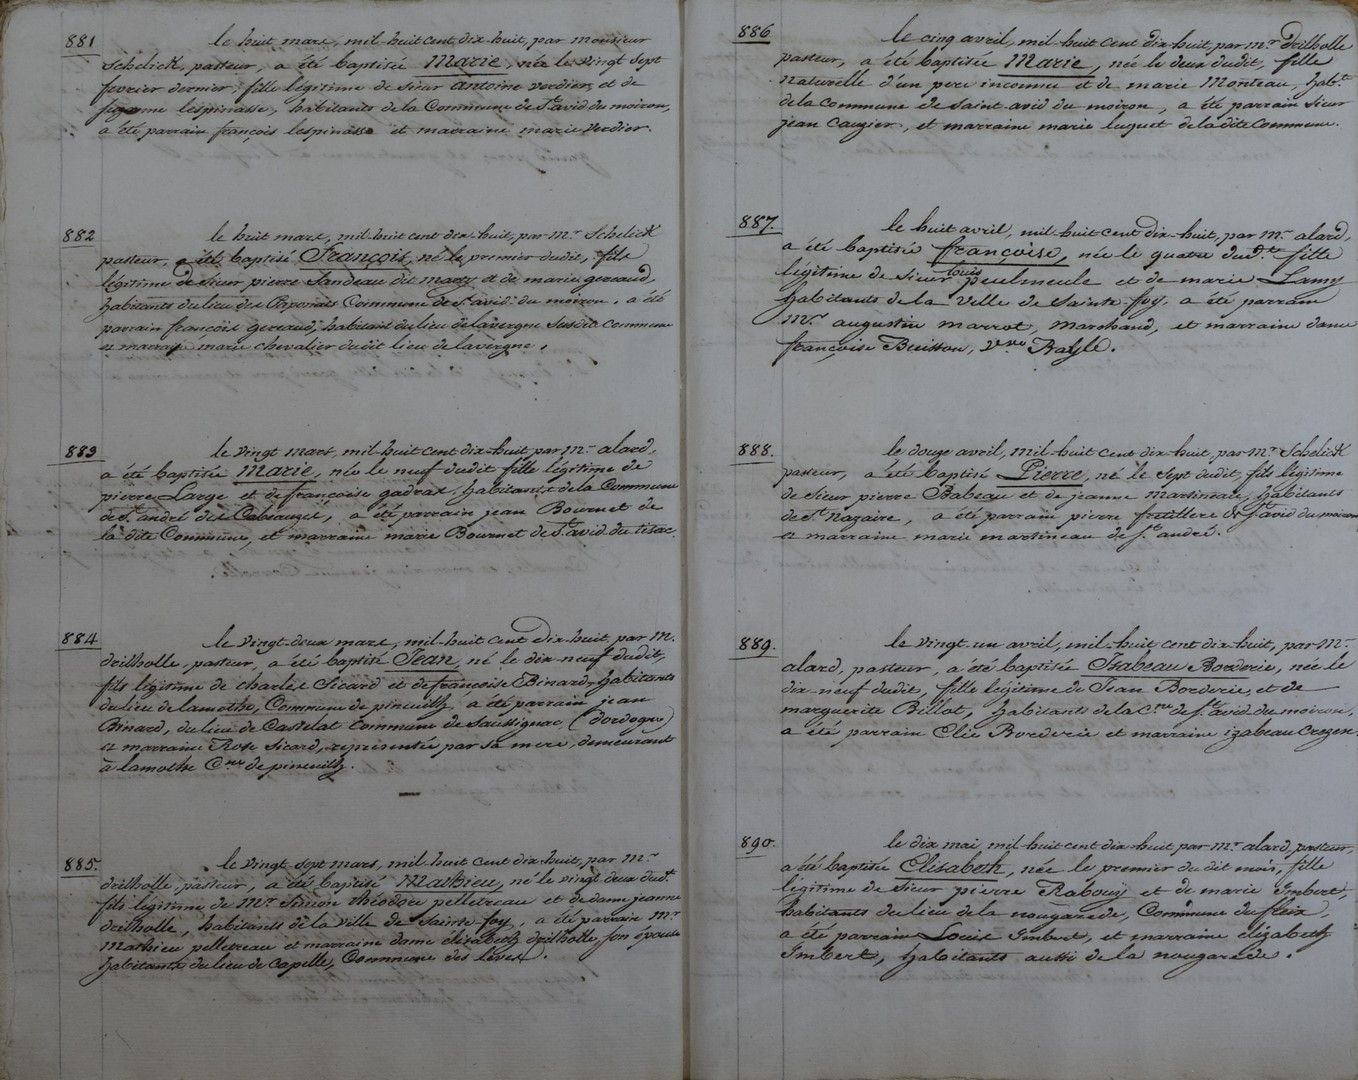 881
le huit mars, mil-huit cent dix-huit, par monsieur
Schelick, pasteur, a été baptisée Marie, née le vingt sept
fevrier dernier, fille légitime de Sieur antoine verdier, et de
suzanne lespinasse, habitants de la Commune de St. avid du moiron,
a été parrain françois lespinasse et marraine marie verdier.
882
le huit mars, mil-huit cent dix-huit, par mr. Schelick
pasteur, a été baptisé François, né le premier dudit, fils
légitime de Sieur pierre Jandeau dit many et de marie gereaud,
habitants du lieu des Commune de St. avid du moiron, a été
parrain françois gereaud, habitant du lieu de lavergne susdite Commune
et marraine marie chevalier dudit lieu de lavergne.
883
le vingt mars, mil-huit cent dix-huit par mr. alard,
a été baptisée Marie, née le neuf dudit fille légitime de
pierre Large et de françoise gadras, habitants de la Commune
de St. andré de Cabeauzes, a été parrain jean Bournet de
la dite Commune, et marraine marie Bournet de St. avid du tisac.
884
le vingt-deux mars, mil-huit cent dix-huit, par M.
drilholle, pasteur, a été baptisé Jean, né le dix-neuf dudit,
fils légitime de charles Sicard et de françoise Binard, habitants
du lieu de lamothe, Commune de pineuilh, a été parrain jean
Binard, du lieu de Castelot Commune de Saussignac, (dordogne)
et marraine Rose Sicard, représentée par sa mere, demeurant
à lamothe Cne. de pineuilh.
885.
le vingt sept mars, mil-huit cent dix-huit, par mr.
drilholle, pasteur, a été baptisé Mathieu, né le vingt deux dudt.
fils légitime de Mr. Simon théodore pelletreau et de dame jeanne
drilholle, habitants de la ville de Sainte foy, a été parrain mr.
Mathieu pelletreau et marraine dame elizabeth drilholle, son épouse
habitants du lieu de Capelle, Commune des lèves.
886
le cinq avril, mil-huit cent dix-huit, par mr. drilholle
pasteur, a été baptisée Marie, née le deux dudit, fille
naturelle d'un pere inconnu et de marie Monteau, habt.
de la commune de Saint avid du moiron, a été parrain Sieur
jean Cauzier, et marraine marie luquet de la dite Commune.
887.
le huit avril, mil-huit cent dix-huit, par mr. alard,
a été baptisée françoise, née le quatre dudt. fille
légitime de Sieur louis peselmeule et de marie Lamy
habitants de la ville de Sainte foy, a été parrain
Mr. augustin marrot, marchand, et marraine dame
françoise Buisson, veuve Rayle.
888.
le douze avril, mil-huit cent dix-huit, par mr. Schelick
pasteur, a été baptisé Pierre, né le sept dudit, fils légitime
de Sieur pierre Babeau et de jeanne martineau, habitants
de St. Nazaire, a été parrain pierre fretillere de St. avid du moiron
et marraine marie martineau de St. andré.
889.
le vingt un avril, mil-huit cent dix-huit, par mr.
alard, pasteur, a été baptisée Isabeau Borderie, née le
dix-neuf dudit, fille légitime de Jean Borderie, et de
marguerite Billot, habitants de la Cne. de St. avid du moiron,
a été parrain Elie Borderie et marraine izabeau Crozen
890.
le dix mai, mil-huit cent dix-huit par mr. alard, pasteur,
a été baptisée Elisabeth, née le premier du dit mois, fille
légitime de Sieur pierre Rabouy et de marie Imbert,
habitants du lieu de la nougarede, Commune du fleix,
a été parrain Louis Imbert, et marraine elizabeth
Imbert, habitants aussi de la nougarede.